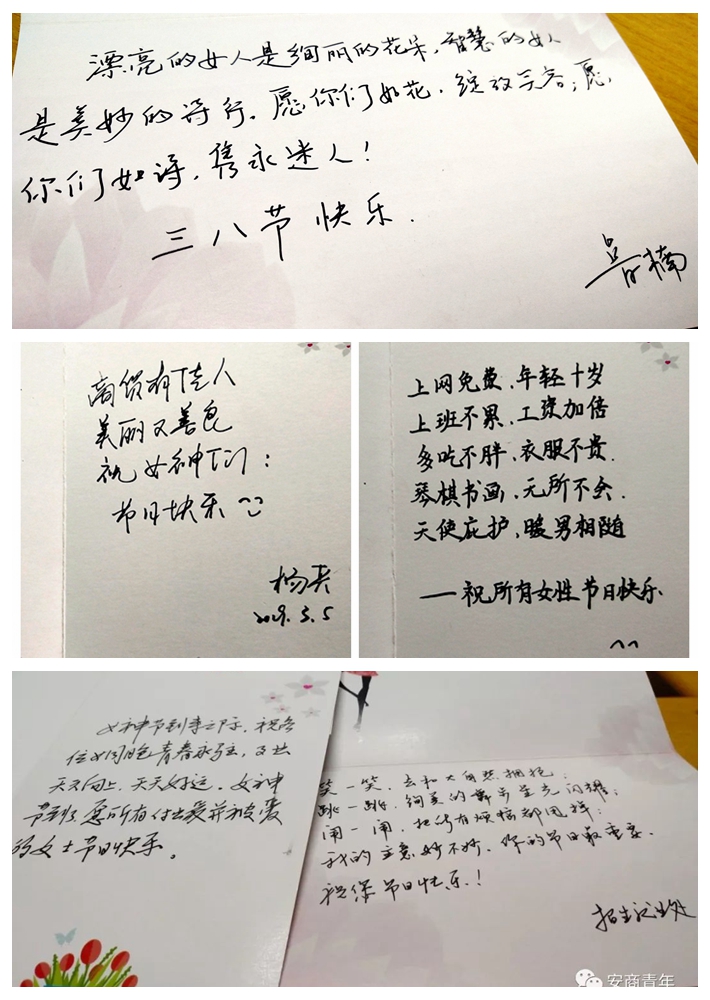 漂亮的女人是绚丽的花朵,智慧的女人
是美妙的诗行。愿你们如花,绽放芬芳;愿
你们如诗,隽永迷人!
三八节快乐.
高贤有佳人
美丽又善良
祝女神们:
节日快乐
杨
2019.3.5
上网免费、年轻十岁
上班不累、工资加倍
多吃不胖、衣服不贵.
琴棋书画,无所不会.
天使庇护,暖男相随
——祝所有女性节日快乐.
女神节到来之际,祝各
位女同胞青春永驻,
天天向上,天天好运。女神
节到了,愿所有付出爱并被爱
的女士节日快乐。
笑一笑,去和大自然拥抱;
跳一跳,绚美的舞步星光闪耀;
闹一闹,把所有烦恼都甩掉;
我的主意妙不妙,你的节日最重要.
祝您节日快乐!
安商青年